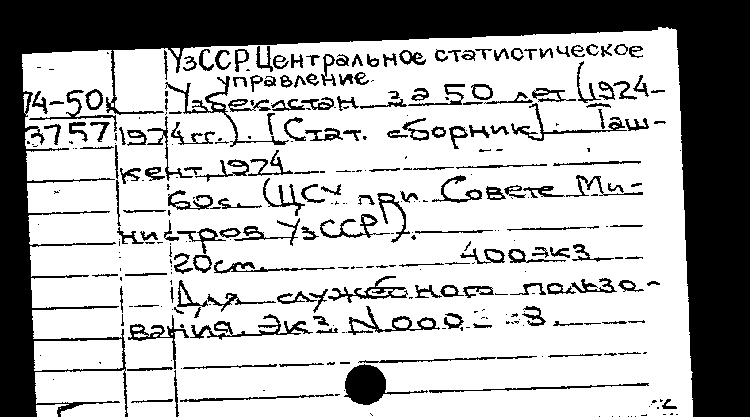 УзССР. Центральное статистическое
управление.
74-50к Узбекистан за 50 лет (1924-
3757 1974 гг.). [Стат. сборник]. Таш-
кент, 1974.
60с. (ЦСУ при Совете Ми-
нистров УзССР).
20cm. 400 экз.
Для служебного пользо-
вания. Экз. N